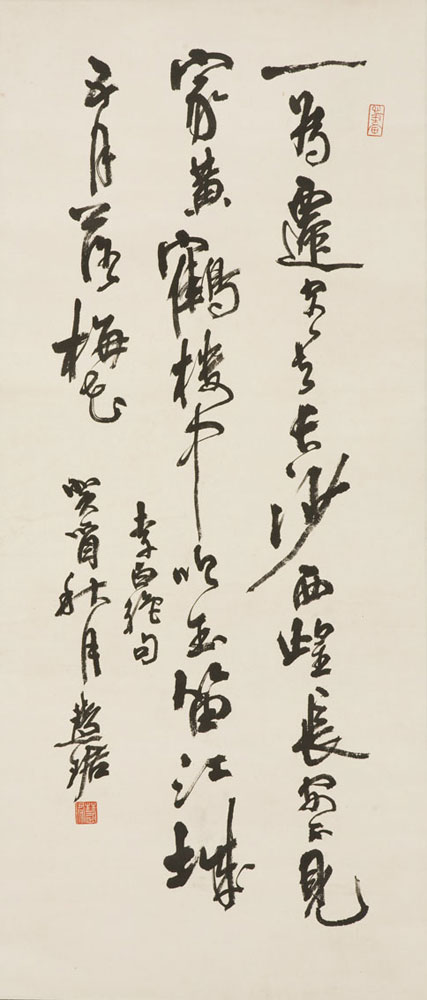 一為遷客去長沙西望長安不見
家黄鶴樓中吹玉笛江城
五月落梅花
李白絕句
癸酉秋月